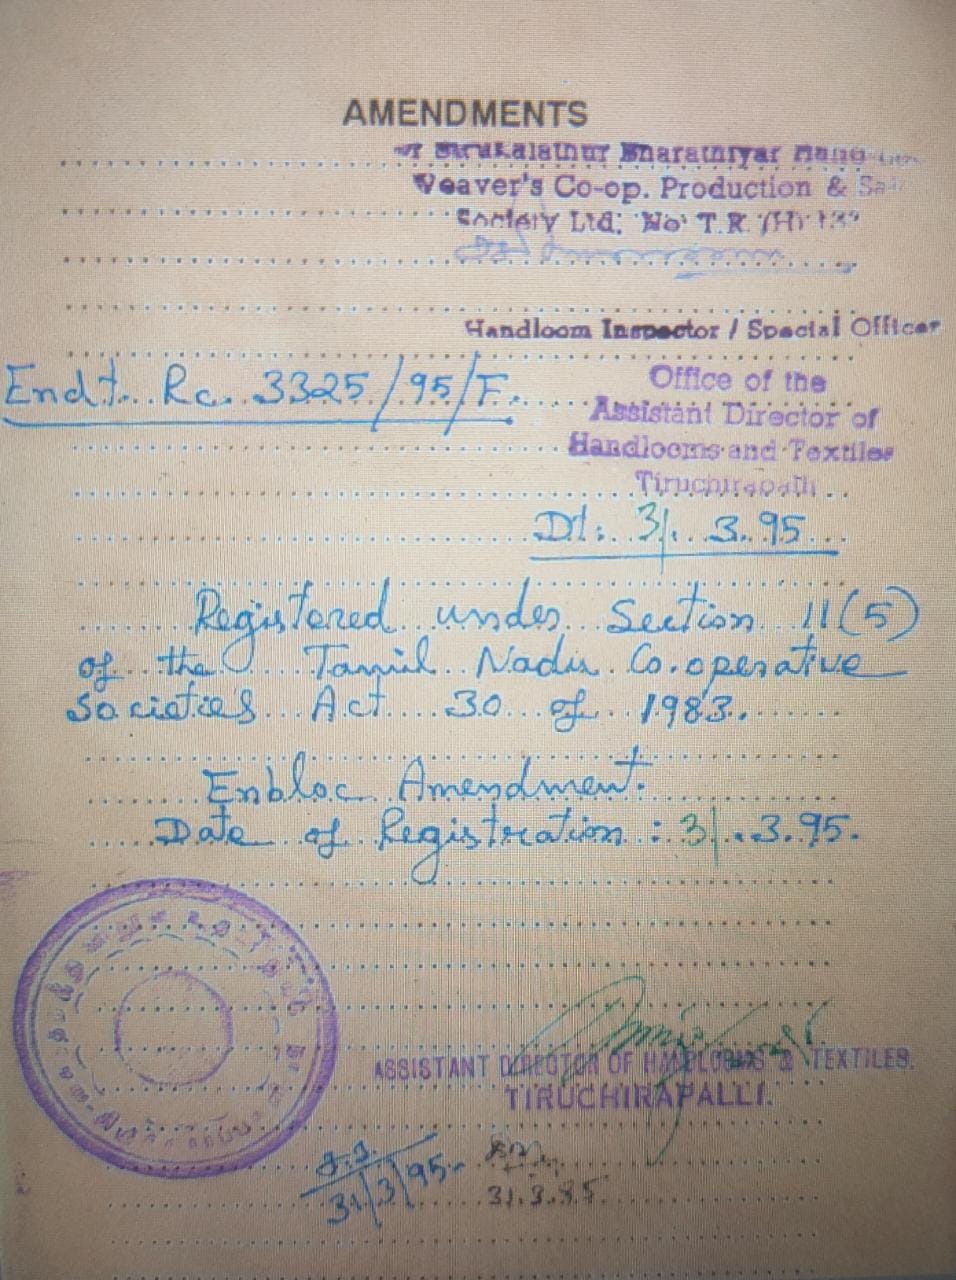 AMENDMENTS
Bharathiyar Hand
Weaver's Co-op. Production & Sal
Society Ltd; No T.R. (H)
Handloom Inspector / Special Officer
Endt. Rc. 3325/95/F.
Office of the
Assistant Director of
Handlooms and Textiles
Tiruchirapalli
Dt: 31. 3.95
Registered under Section 11(5)
of the Tamil Nadu Co.operative
Societies Act 30 of 1983.
Enbloc Amendment.
Date of Registration : 31.3.95.
ASSISTANT DIRECTOR OF HANDLOOMS & TEXTILES.
TIRUCHIRAPALLI.
31/3/95